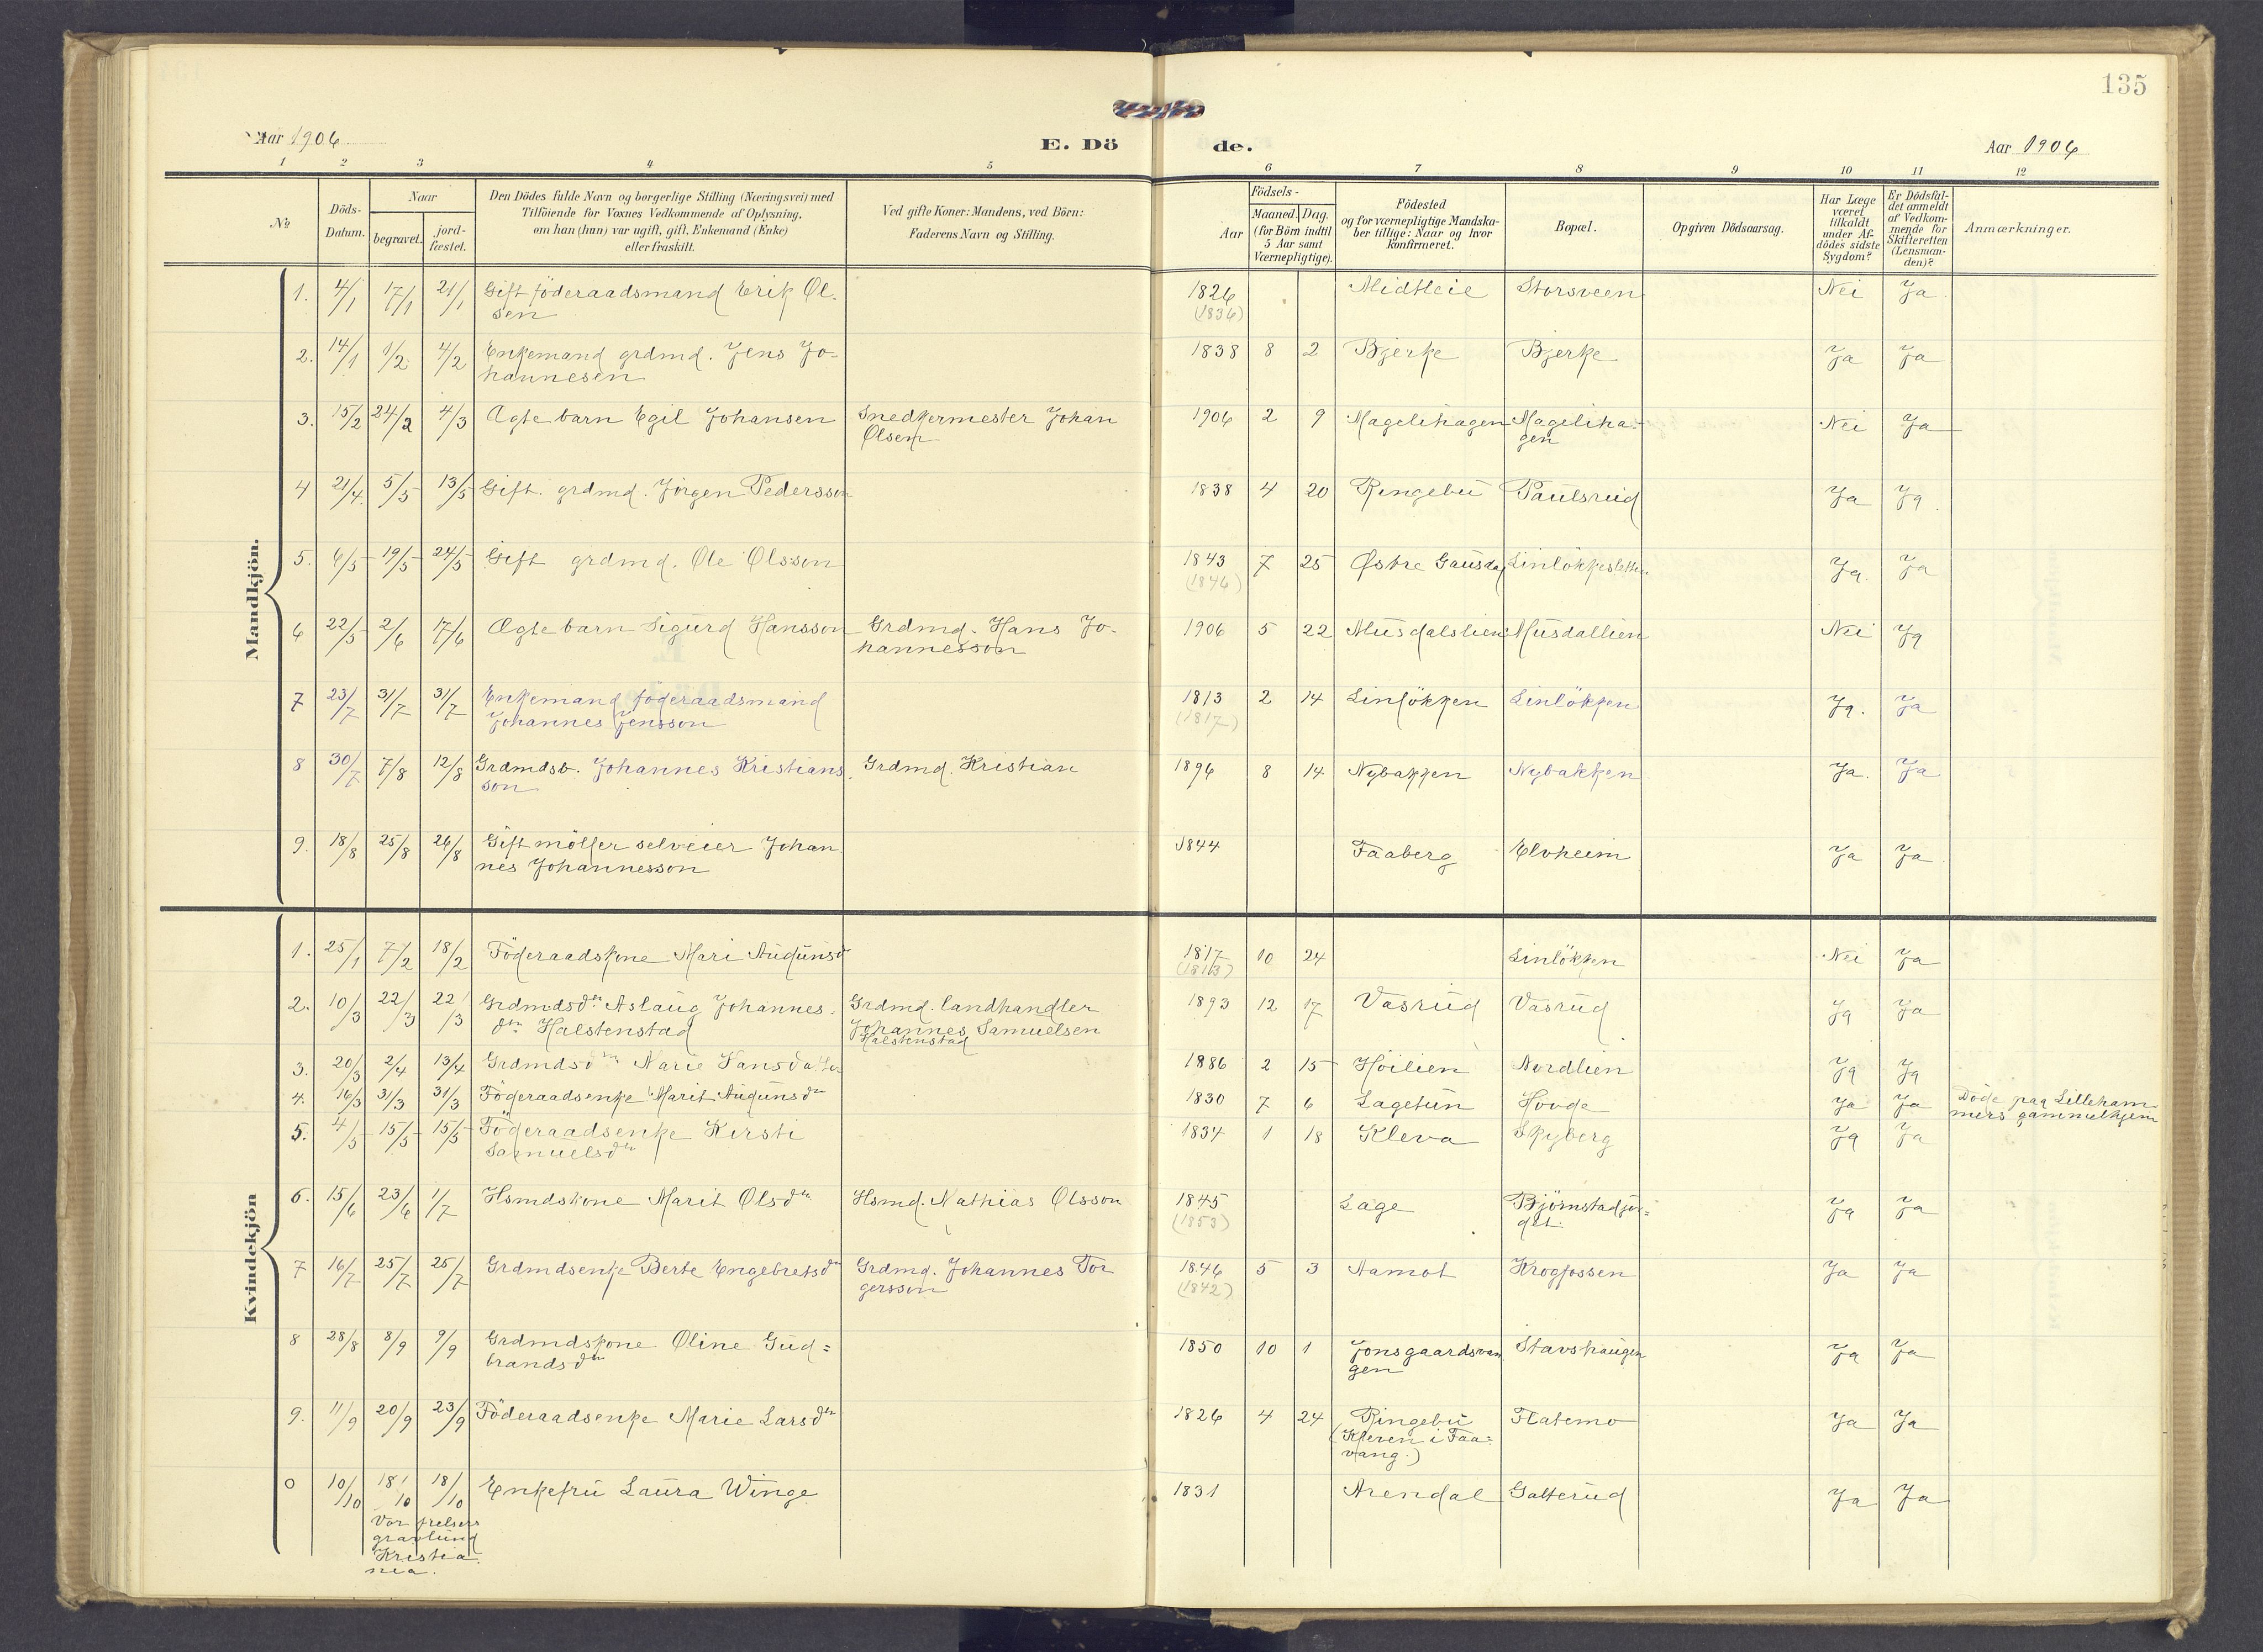 135
Aar 1906
E. Dö de.
Aar 1906
1 2 3 4 5 6 7 8 9 10 11 12
No
Döds-Datum.
Naar
begravet.
jord-fæstet.
Den Dödes fulde Navn og borgerlige Stilling (Næringsvei) med
Tilföiende for Voxnes Vedkommende af Oplysning,
om han (hun) var ugift, gift, Enkemand (Enke)
eller fraskilt.
Ved gifte Koner: Mandens, ved Börn:
Faderens Navn og Stilling.
Födsels-
Aar
Maaned. Dag.
(for Börn indtil
5 Aar samt
Værnepligtige).
Födested
og for værnepligtige Mandska-
ber tillige: Naar og hvor
Konfirmeret.
Bopæl.
Opgiven Dödsaarsag.
Har Læge
været
tilkaldt
under Af-
dödes sidste
Sygdom?
Er Dödsfal-
det anmeldt
af Vedkom-
mende for
Skifteretten
(Lensman-
den)?
Anmærkninger.
Mandkjön.
1. 4/1 17/1 21/1 Gift föderaadsmand Erik Ol- 1826 Midtleie Storsveen Nei Ja
sen (1836)
2. 14/1 1/2 4/2 Enkemand grdmd. Jens Jo- 1838 8 2 Bjerke Bjerke Ja Ja
hannesen
3. 15/2 24/2 4/3 Ægte barn Egil Johansen Snedkermester Johan 1906 2 9 Magelihagen Mageliha- Nei Ja
Olsen gen
4 21/4 5/5 13/5 Gift. grdmd. Jörgen Pedersson 1838 4 20 Ringebu Paulsrud Ja Ja
5. 6/5 19/5 24/5 Gift grdmd. Ole Olsson 1843 7 25 Østre Gausdal Linlökkesletten Ja. Ja
(1846)
6 22/5 2/6 17/6 Ægte barn Sigurd Hansson Grdmd. Hans Jo- 1906 5 22 Musdalslien Musdallien Nei Ja
hannesson
7 23/7 31/7 31/7 Enkemand föderaadsmand 1813 2 14 Linlökken Linlökken Ja. Ja
Johannes Jensson (1817)
8 30/7 7/8 12/8 Grdmdsb. Johannes Kristians Grdmd. Kristian 1896 8 14 Nybakken Nybakken Ja. Ja
son
9. 18/8 25/8 26/8 Gift möller selveier Johan 1844 Faaberg Elvheim Ja Ja
nes Johannesson
Kvindekjön
1. 25/1 7/2 18/2 Föderaadskone Mari Augunsdr 1817 10 24 Linlökken Nei Ja
(1813)
2. 10/3 22/3 22/3 Grdmdsdtr Aslaug Johannes- Grdmd. landhandler 1893 12 17 Vasrud Vasrud Ja Ja
dtr Halstenstad Johannes Samuelsen
Halstenstad
3. 20/3 2/4 13/4 Grdmdsdtr Marie Hansdatter 1886 2 15 Höilien Nordlien Ja Ja
4. 16/3 31/3 31/3 Föderaadsenke Marit Augunsdtr 1830 7 6 Lagetun Hovde Ja Ja Döde paa Lilleham-
mers gammelhjem
5. 4/5 15/5 15/5 Föderaadsenke Kersti 1834 1 18 Kleva Skyberg Ja Ja
Samuelsdtr
6. 15/6 23/6 1/7 Hsmdskone Marit Olsdtr Hsmd. Mathias Olsson 1845 Lage Björnstadjor= Ja Ja
(1853) det.
7 16/7 25/7 25/7 Grdmdsenke Berte Engebretsdtr Grdmd. Johannes Tor 1846 5 3 Aamot Krogfossen Ja Ja
gersson (1842)
8 28/8 8/9 9/9 Grdmdskone Oline Gud= 1850 10 1 Jonsgaardsvan Stavshaugen Ja Ja
brandsdtr gen
9. 11/9 20/9 23/9 Föderaadsenke Marie Larsdtr 1826 4 24 Ringebu Flatemo Ja Ja
(Kleven i Faa=
vang.)
0 10/10 18/10 18/10 Enkefru Laura Winge 1831 Arendal Galterud Ja Ja
Vor frelsers
gravlund
Kristia
nia.